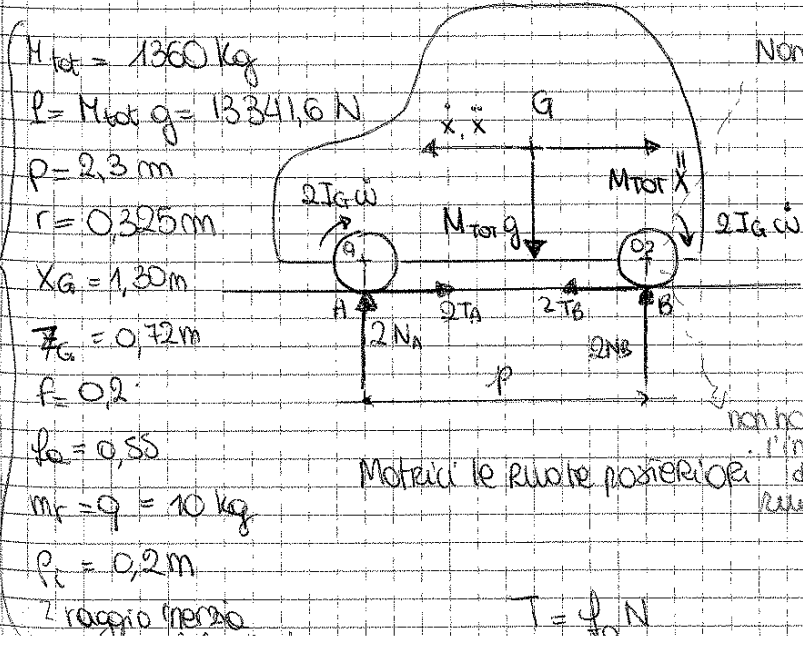 M tot = 1360 kg
P = Mtot g = 13341,6 N
p = 2,3 m
r = 0,325 m
XG = 1,30 m
ZG = 0,72 m
f = 0,2
fa = 0,55
mr = q = 10 kg
ρi = 0,2 m
raggio inerzia
Non
G
ẋ, ẍ
MTOT Ẍ
2IG ω̇
MTOT g
2IG ω̇
O2
A
2TA
2TB
B
2NA
2NB
p
non ho
l'in
Motrici le ruote posteriori
T = fa N